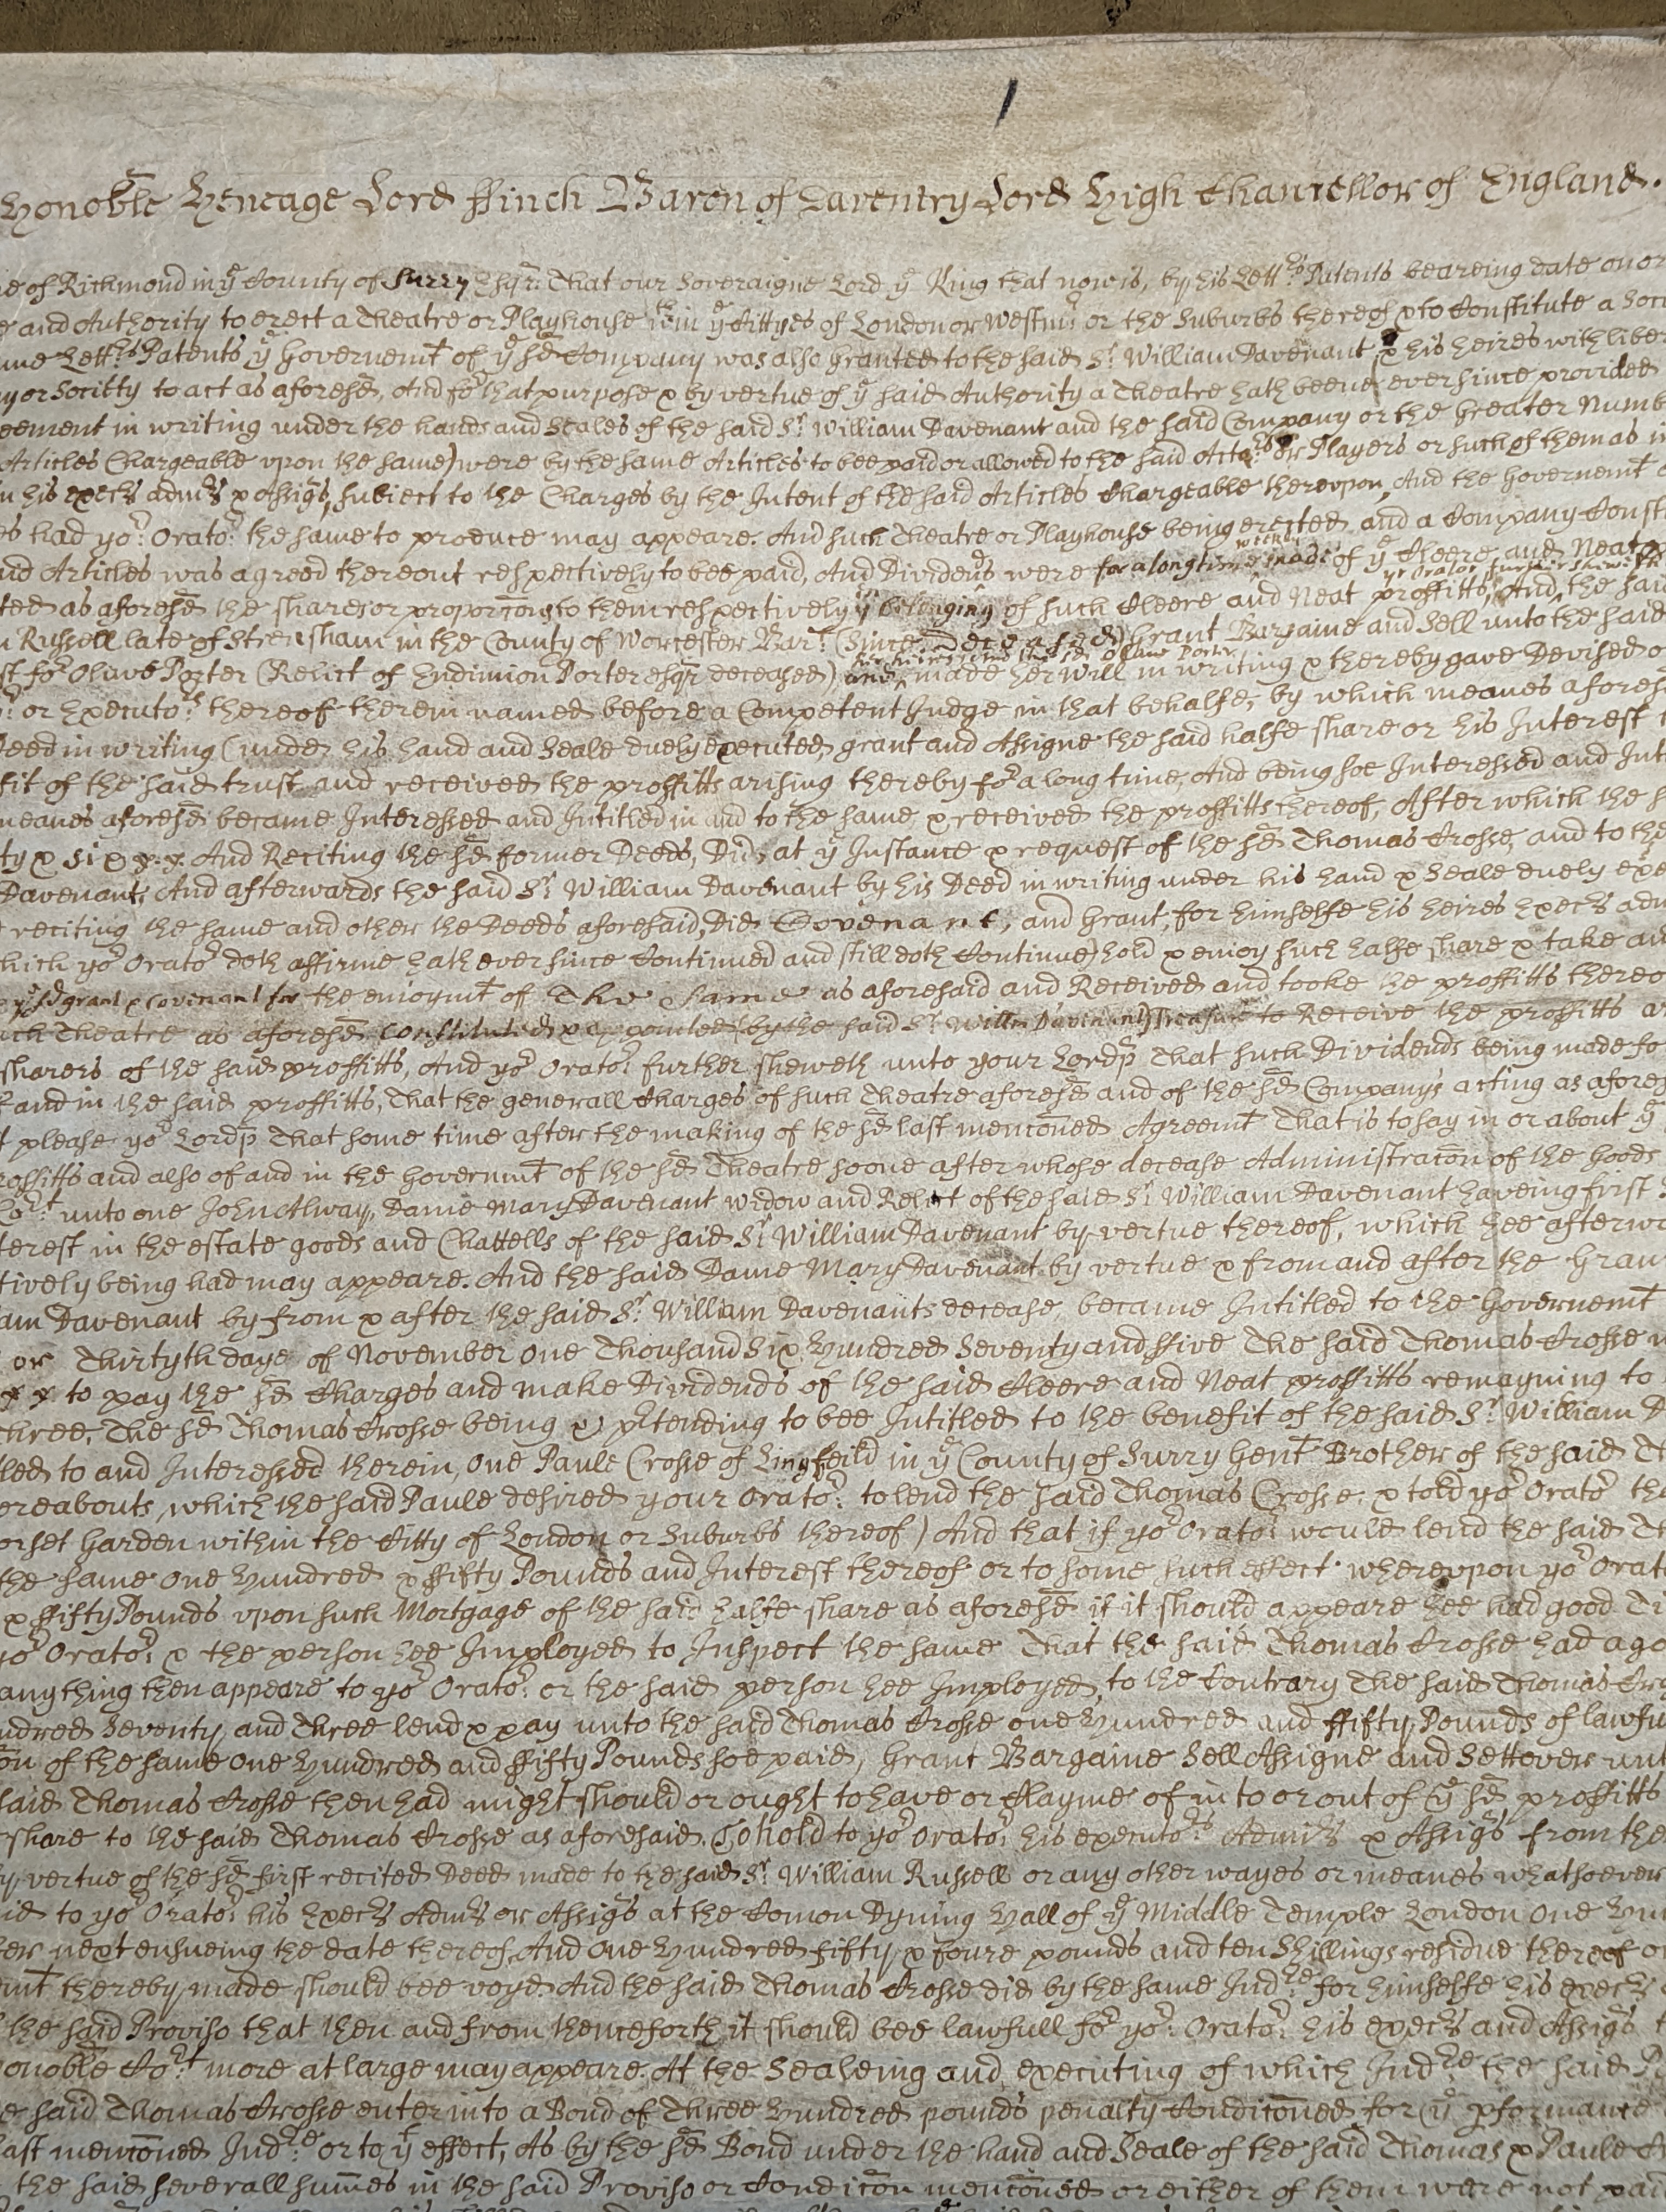 Honoble Heneage Lord ffinch Baron of Daventry Lord High Chancellor of England.
of Richmond in ye County of Surry Esqr. That our Soveraigne Lord ye King that now is, by his Letters Patents beareing date on or
and Authority to erect a Theatre or Playhouse wthin ye Cittyes of London or Westmr or the Suburbs thereof & to Constitute a
Letters Patents ye Governemt of ye sd Company was also granted to the said Sr William Davenant & his heires with
or Society to act as aforesd, And for that purpose & by vertue of ye said Authority a Theatre hath beene ever since provided
in writing under the hands and Seales of the said Sr William Davenant and the said Company or the Greater
Articles Chargeable upon the same) were by the same Articles to bee paid or allowed to the said Actors or Players or such of them as
his execrs admrs & assigns, subject to the Charges by the Intent of the said Articles Chargeable thereupon, And the Governemt
had yor Orator the same to produce may appeare. And such Theatre or Playhouse being erected and a Company
Articles was agreed thereout respectively to bee paid, And Dividends were for a long time made of ye Cleere and Neat
as aforesd the shares or proporcons to them respectively belonging of such Cleere and Neat proffitts, And the said
Russell late of Strensham in the County of Worcester Bart (Since Deceased) Grant Bargaine and Sell unto the said
for Olive Porter (Relict of Endimion Porter esqr deceased) made her Will in writing & thereby gave Devised
or Executors thereof therein named before a Competent Judge in that behalfe, by which meanes
in writing (under his hand and Seale duely executed) grant and Assigne the said halfe share or his Interest
of the said trust and received the proffitts arising thereby for a long time, And being soe Interessed and
meanes aforesd became Interessed and Intitled in and to the same & received the proffitts thereof, After which the
& six And Reciting the sd former Deeds, Did at ye Instance & request of the sd Thomas Crosse, and to the
Davenant, And afterwards the said Sr William Davenant by his Deed in writing under his hand & Seale duely
reciting the same and other the Deeds aforesaid, Did Covenant, and Grant, for himselfe his heires execrs
yor Orator doth affirme hath ever since Continued and still doth Continue) hold & enjoy such halfe share & take
ye sd grant & covenant for the enjoymt of The Same as aforesaid and Received and tooke the proffitts
Theatre as aforesd constituted & appointed (by the said Sr Willm Davenant) Treasurer to Receive the proffitts
sharers of the said proffitts, And yor Orator further sheweth unto your Lordp That such Dividends being made
and in the said proffitts, That the generall Charges of such Theatre aforesd and of the sd Companys acting as
please yor Lordp That some time after the making of the sd last menconed Agreemt That is to say in or about ye
and also of and in the Governmt of the sd Theatre soone after whose decease Administracon of the Goods
unto one John Alway, Dame Mary Davenant widow and Relict of the said Sr William Davenant haveing first
in the estate goods and Chattells of the said Sr William Davenant by vertue thereof, which hee
being had may appeare. And the said Dame Mary Davenant by vertue & from and after the
Davenant by from & after the said Sr William Davenants decease, became Intitled to the Governemt
or Thirtyth daye of November One Thousand Six Hundred Seventy and ffive The said Thomas Crosse
to pay the sd Charges and make Dividends of the said Cleere and Neat proffitts remayning to
Three, The sd Thomas Crosse being or prtending to bee Intitled to the benefit of the said Sr William
to and Interessed therein, One Paule Crosse of Lingfeild in ye County of Surry Gent Brother of the said
which the said Paule desired your Orator to lend the said Thomas Crosse, & told yor Orator
Garden within the Citty of London or Suburbs thereof) And that if yor Orator would lend the said
the same One Hundred & ffifty Pounds and Interest thereof or to some such effect whereupon yor
& ffifty Pounds upon such Mortgage of the said halfe share as aforesd if it should appeare hee had good
yor Orator & the person hee Imployed to Inspect the same That the said Thomas Crosse had
anything then appeare to yor Orator or the said person hee Imployed, to the Contrary The said Thomas
Seventy and Three lend & pay unto the said Thomas Crosse one Hundred and ffifty Pounds of
of the same One Hundred and ffifty Pounds soe paid, Grant Bargaine Sell Assigne and Settover
said Thomas Crosse then had might should or ought to have or Clayme of in to or out of ye sd proffitts
share to the said Thomas Crosse as aforesaid, To hold to yor Orator his executors Admrs & Assigns from the
vertue of the sd first recited Deed made to the said Sr William Russell or any other wayes or meanes whatsoever
to yor Orator his Execrs Admrs or Assigns at the Comon Dyning Hall of ye Middle Temple London One
next ensueing the date thereof, And One Hundred fifty & foure pounds and ten Shillings residue thereof
thereby made should bee voyd. And the said Thomas Crosse did by the same Indre for himselfe his execrs
the said Proviso that then and from thenceforth it should bee lawfull for yor Orator his execrs and Assigns
Cort more at large may appeare. At the Sealeing and executing of which Indre the said
said Thomas Crosse enter into a Bond of Three Hundred pounds penalty Condiconed for ye performance
last menconed Indre or to yt effect, As by the sd Bond under the hand and Seale of the said Thomas & Paule
the said severall summes in the said Proviso or Condicon menconed or either of them were not paid